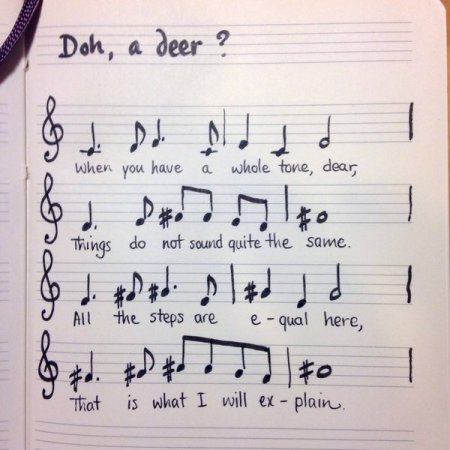 Doh, a deer ?
When you have a whole tone, dear,
Things do not sound quite the same.
All the steps are e-qual here,
That is what I will ex-plain.